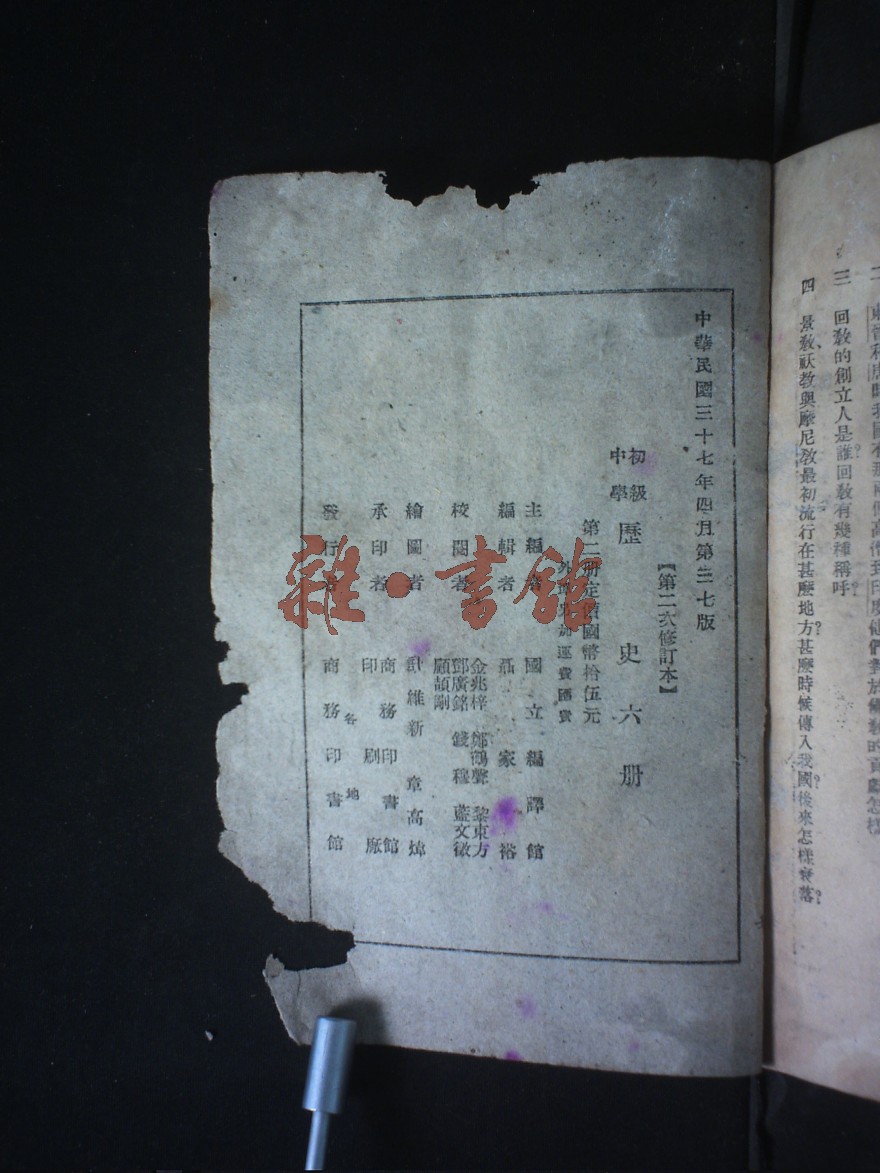 二
三　回敎的創立人是誰?回敎有幾種稱呼?
四　景敎、祆敎與摩尼敎最初流行在甚麽地方?甚麽時候傳入我國?後來怎樣衰落?
中華民國三十七年四月第二七版
【第二次修訂本】
初級中學 歷史六册
第二册定價國幣拾伍元
外埠 加運費匯費
主編者 國立編譯館
編輯者 莊家裕
校閱者 金兆梓 鄭鶴聲 黎東方
鄧廣銘 錢穆 藍文徵
顧頡剛
繪圖者 維新 章高煒
承印者 商務印書館
印刷廠
發行者 各地
商務印書館
雜·書館